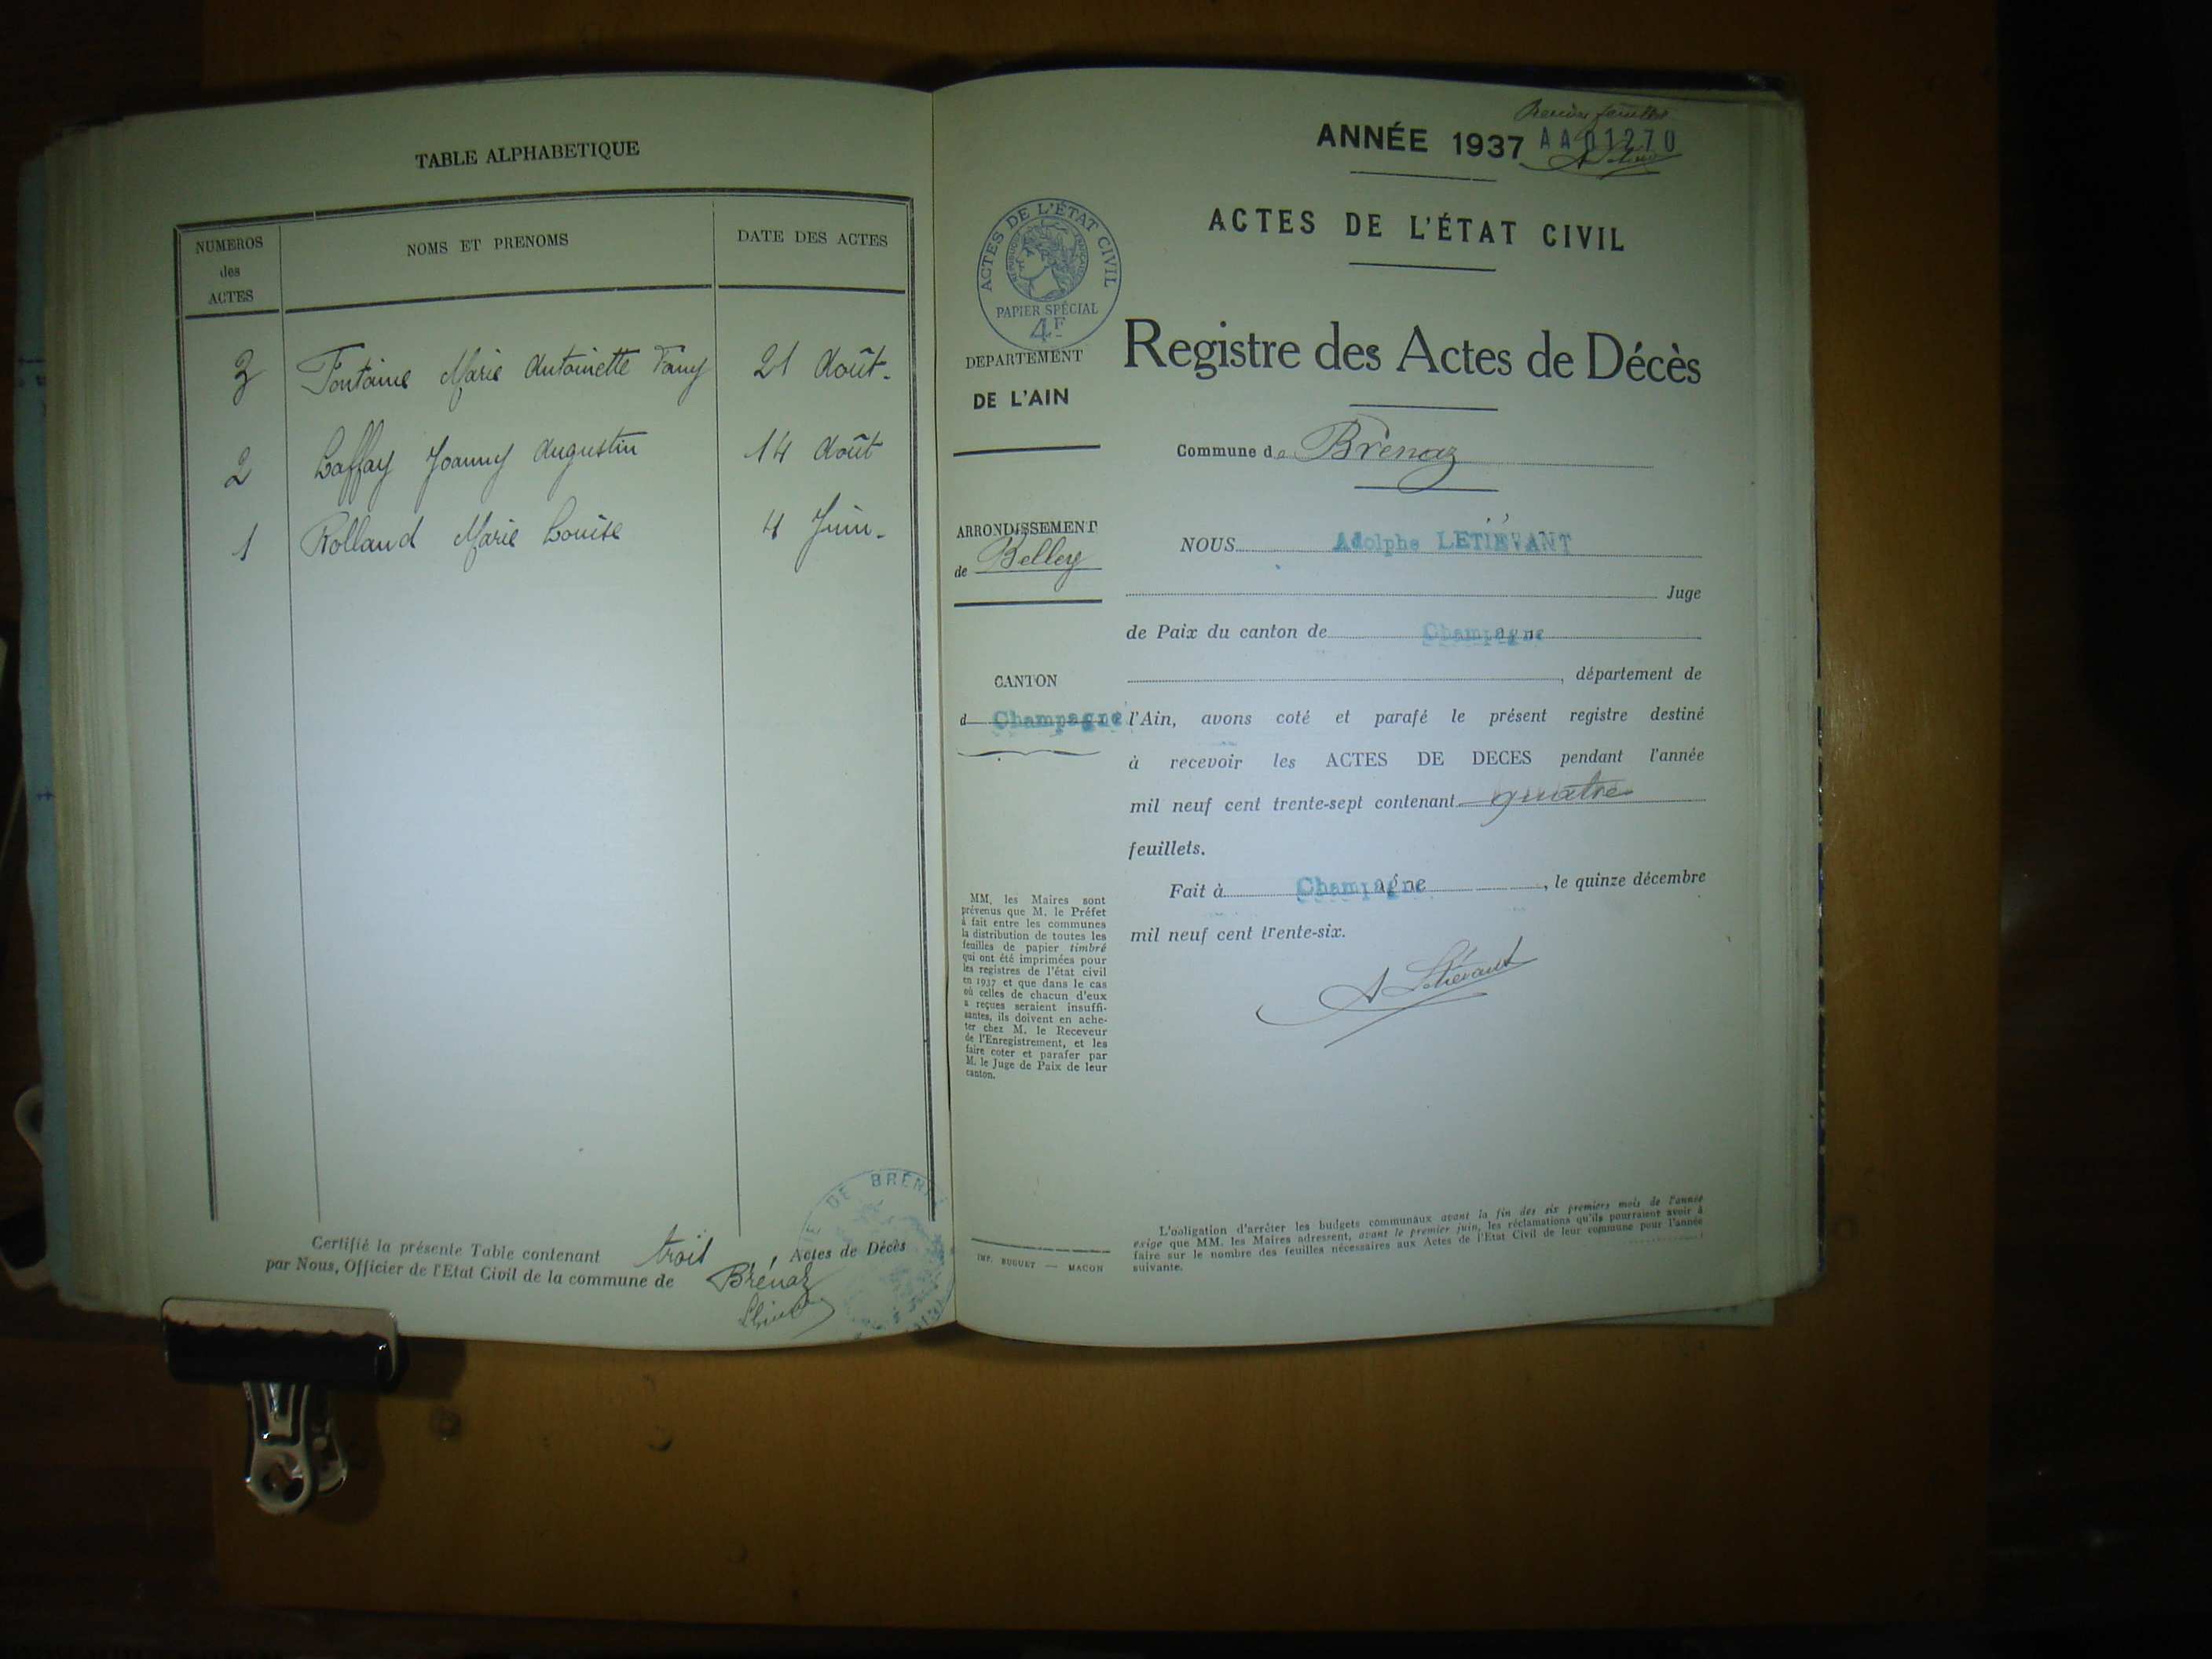 TABLE ALPHABETIQUE
NUMEROS
des
ACTES
NOMS ET PRENOMS
DATE DES ACTES
3 Fontaine Marie Antoinette Fany 21 Août.
2 Laffay Joanny Augustin 14 Août
1 Rolland Marie Louise 4 Juin.
Certifié la présente Table contenant trois Actes de Décès
par Nous, Officier de l'Etat Civil de la commune de Brénaz
DE BRÉN
ANNÉE 1937
AA 01270
ACTES DE L'ÉTAT CIVIL
ACTES DE L'ÉTAT CIVIL
RÉPUBLIQUE FRANÇAISE
PAPIER SPÉCIAL
4F
Registre des Actes de Décès
DEPARTEMENT
DE L'AIN
Commune de Brénaz
ARRONDISSEMENT
de Belley
CANTON
d Champagne
NOUS Adolphe LETIÉVANT
Juge
de Paix du canton de Champagne
, département de
l'Ain, avons coté et parafé le présent registre destiné
à recevoir les ACTES DE DECES pendant l'année
mil neuf cent trente-sept contenant quatre
feuillets.
Fait à Champagne, le quinze décembre
mil neuf cent trente-six.
A Letiévant
MM. les Maires sont
prévenus que M. le Préfet
a fait entre les communes
la distribution de toutes les
feuilles de papier timbré
qui ont été imprimées pour
les registres de l'état civil
en 1937 et que dans le cas
où celles de chacun d'eux
a reçues seraient insuffi-
santes, ils doivent en ache-
ter chez M. le Receveur
de l'Enregistrement, et les
faire coter et parafer par
M. le Juge de Paix de leur
canton.
IMP. BUGUET — MACON
L'obligation d'arrêter les budgets communaux avant la fin des six premiers mois de l'année
exige que MM. les Maires adressent, avant le premier juin, les réclamations qu'ils pourraient avoir à
faire sur le nombre des feuilles nécessaires aux Actes de l'Etat Civil de leur commune pour l'année
suivante.